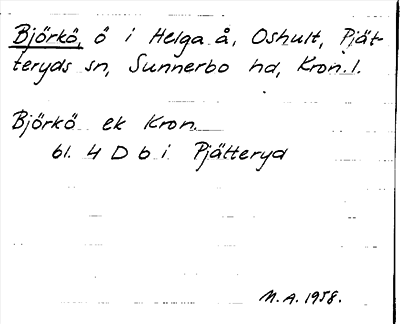 Björkö, ö i Helga å, Oshult, Pjät-
teryds sn, Sunnerbo hd, Kron. l.
Björkö ek Kron.
bl. 4 D b i Pjätteryd
M.A. 1958.